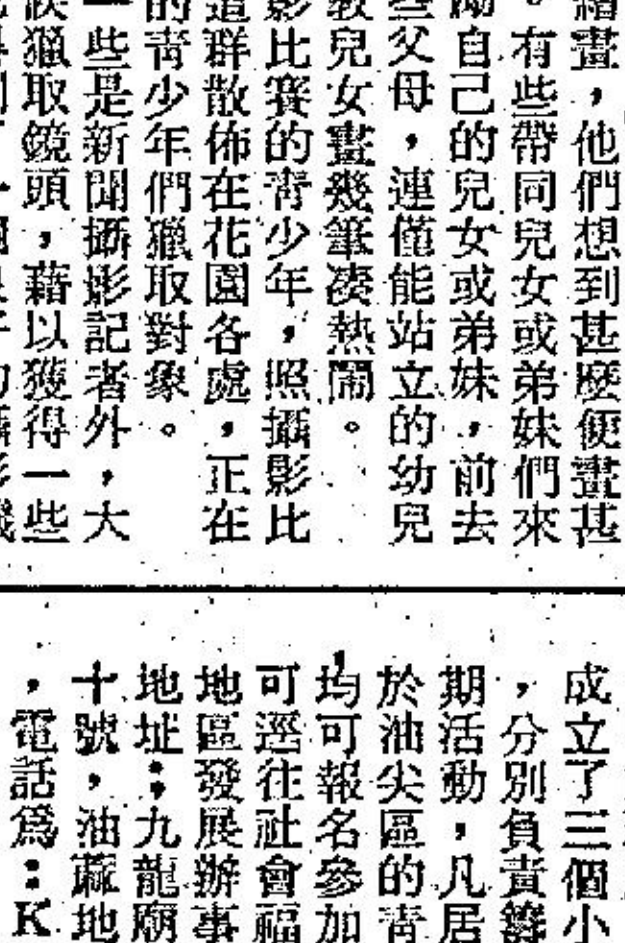 繪畫，他們想到甚麼便畫甚
。有些帶同兒女或弟妹們來
勵自己的兒女或弟妹，前去
些父母，連僅能站立的幼兒
教兒女畫幾筆湊熱鬧。
影比賽的青少年，照攝影比
這群散佈在花園各處，正在
的青少年們獵取對象。
一些是新聞攝影記者外，大
獵取鏡頭，藉以獲得一些
成立了三個小
，分別負責籌
期活動，凡居
於油尖區的青
均可報名參加
可逕往社會福
地區發展辦事
地址：九龍廟
十號，油蔴地
，電話爲：K